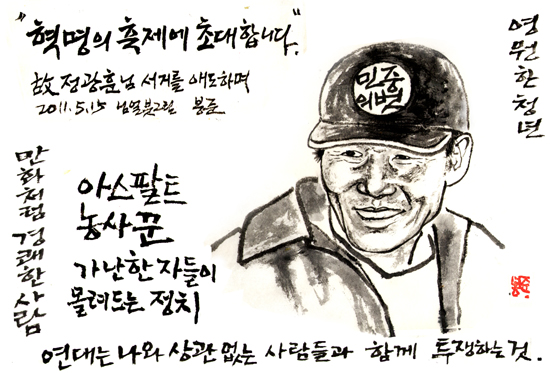 "혁명의 축제에 초대합니다."
故 정광훈님 서거를 애도하며
2011.5.15 봉준
영원한 청년
민중
의벗
만화처럼 경쾌한 사람
아스팔트
농사꾼
가난한 자들이
몰려드는 정치
연대는 나와 상관 없는 사람들과 함께 투쟁하는 것.